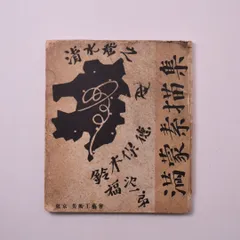 満蒙素描集
清水登之
鈴木保徳
福沢一郎